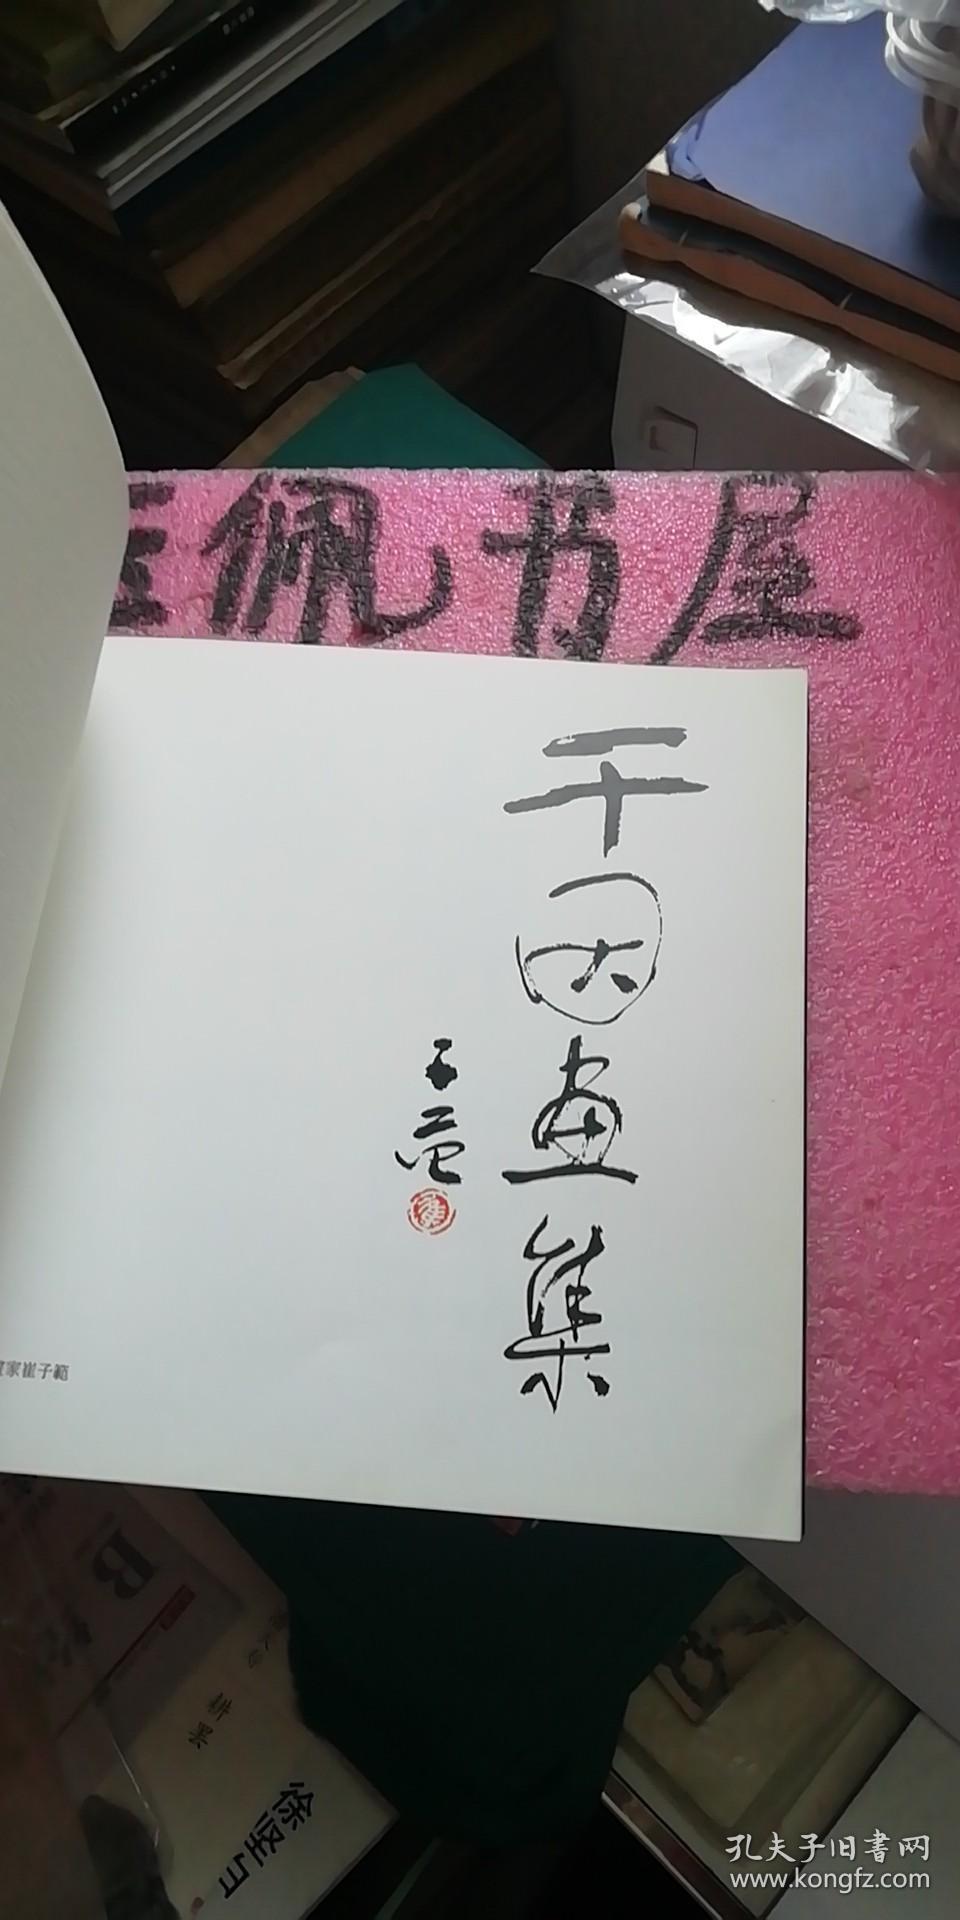 佩书屋
于因画集
子范
家崔子範
耕墨
徐坚与
孔夫子旧書网
www.kongfz.com